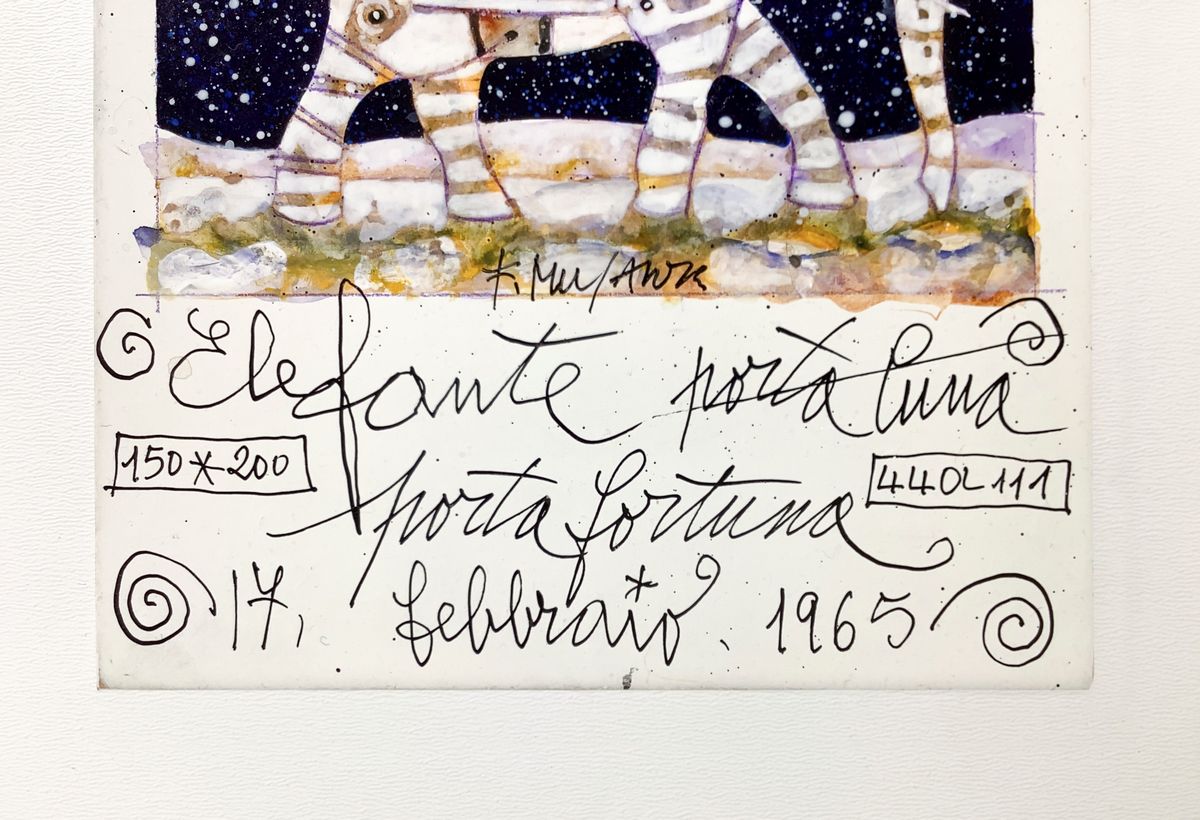 F. Musante
Elefante porta luna
150*200
porta fortuna
440L111
17, febbraio. 1965